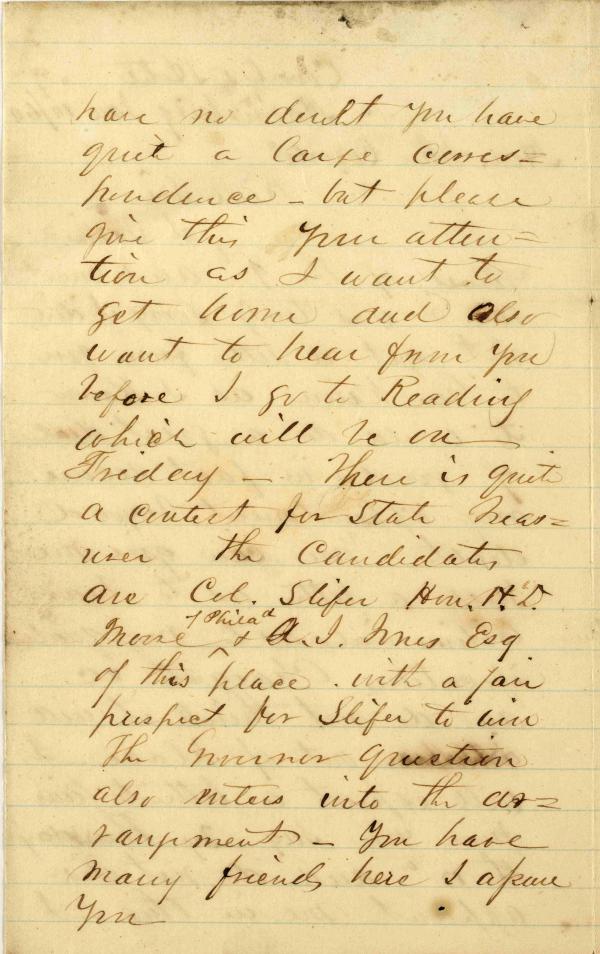 have no doubt you have
quite a large corres=
pondence - but please
give this your atten=
tion as I want to
get home and also
want to hear from you
before I go to Reading
which will be on
Friday - There is quite
a contest for State Treas=
urer the Candidates
are Col. Slifer Hon. H. D.
Moore of Philad & A. I. Jones Esq
of this place . with a fair
prospect for Slifer to win
The Governor question
also enters into the ar=
rangement - You have
many friends here I assure
You